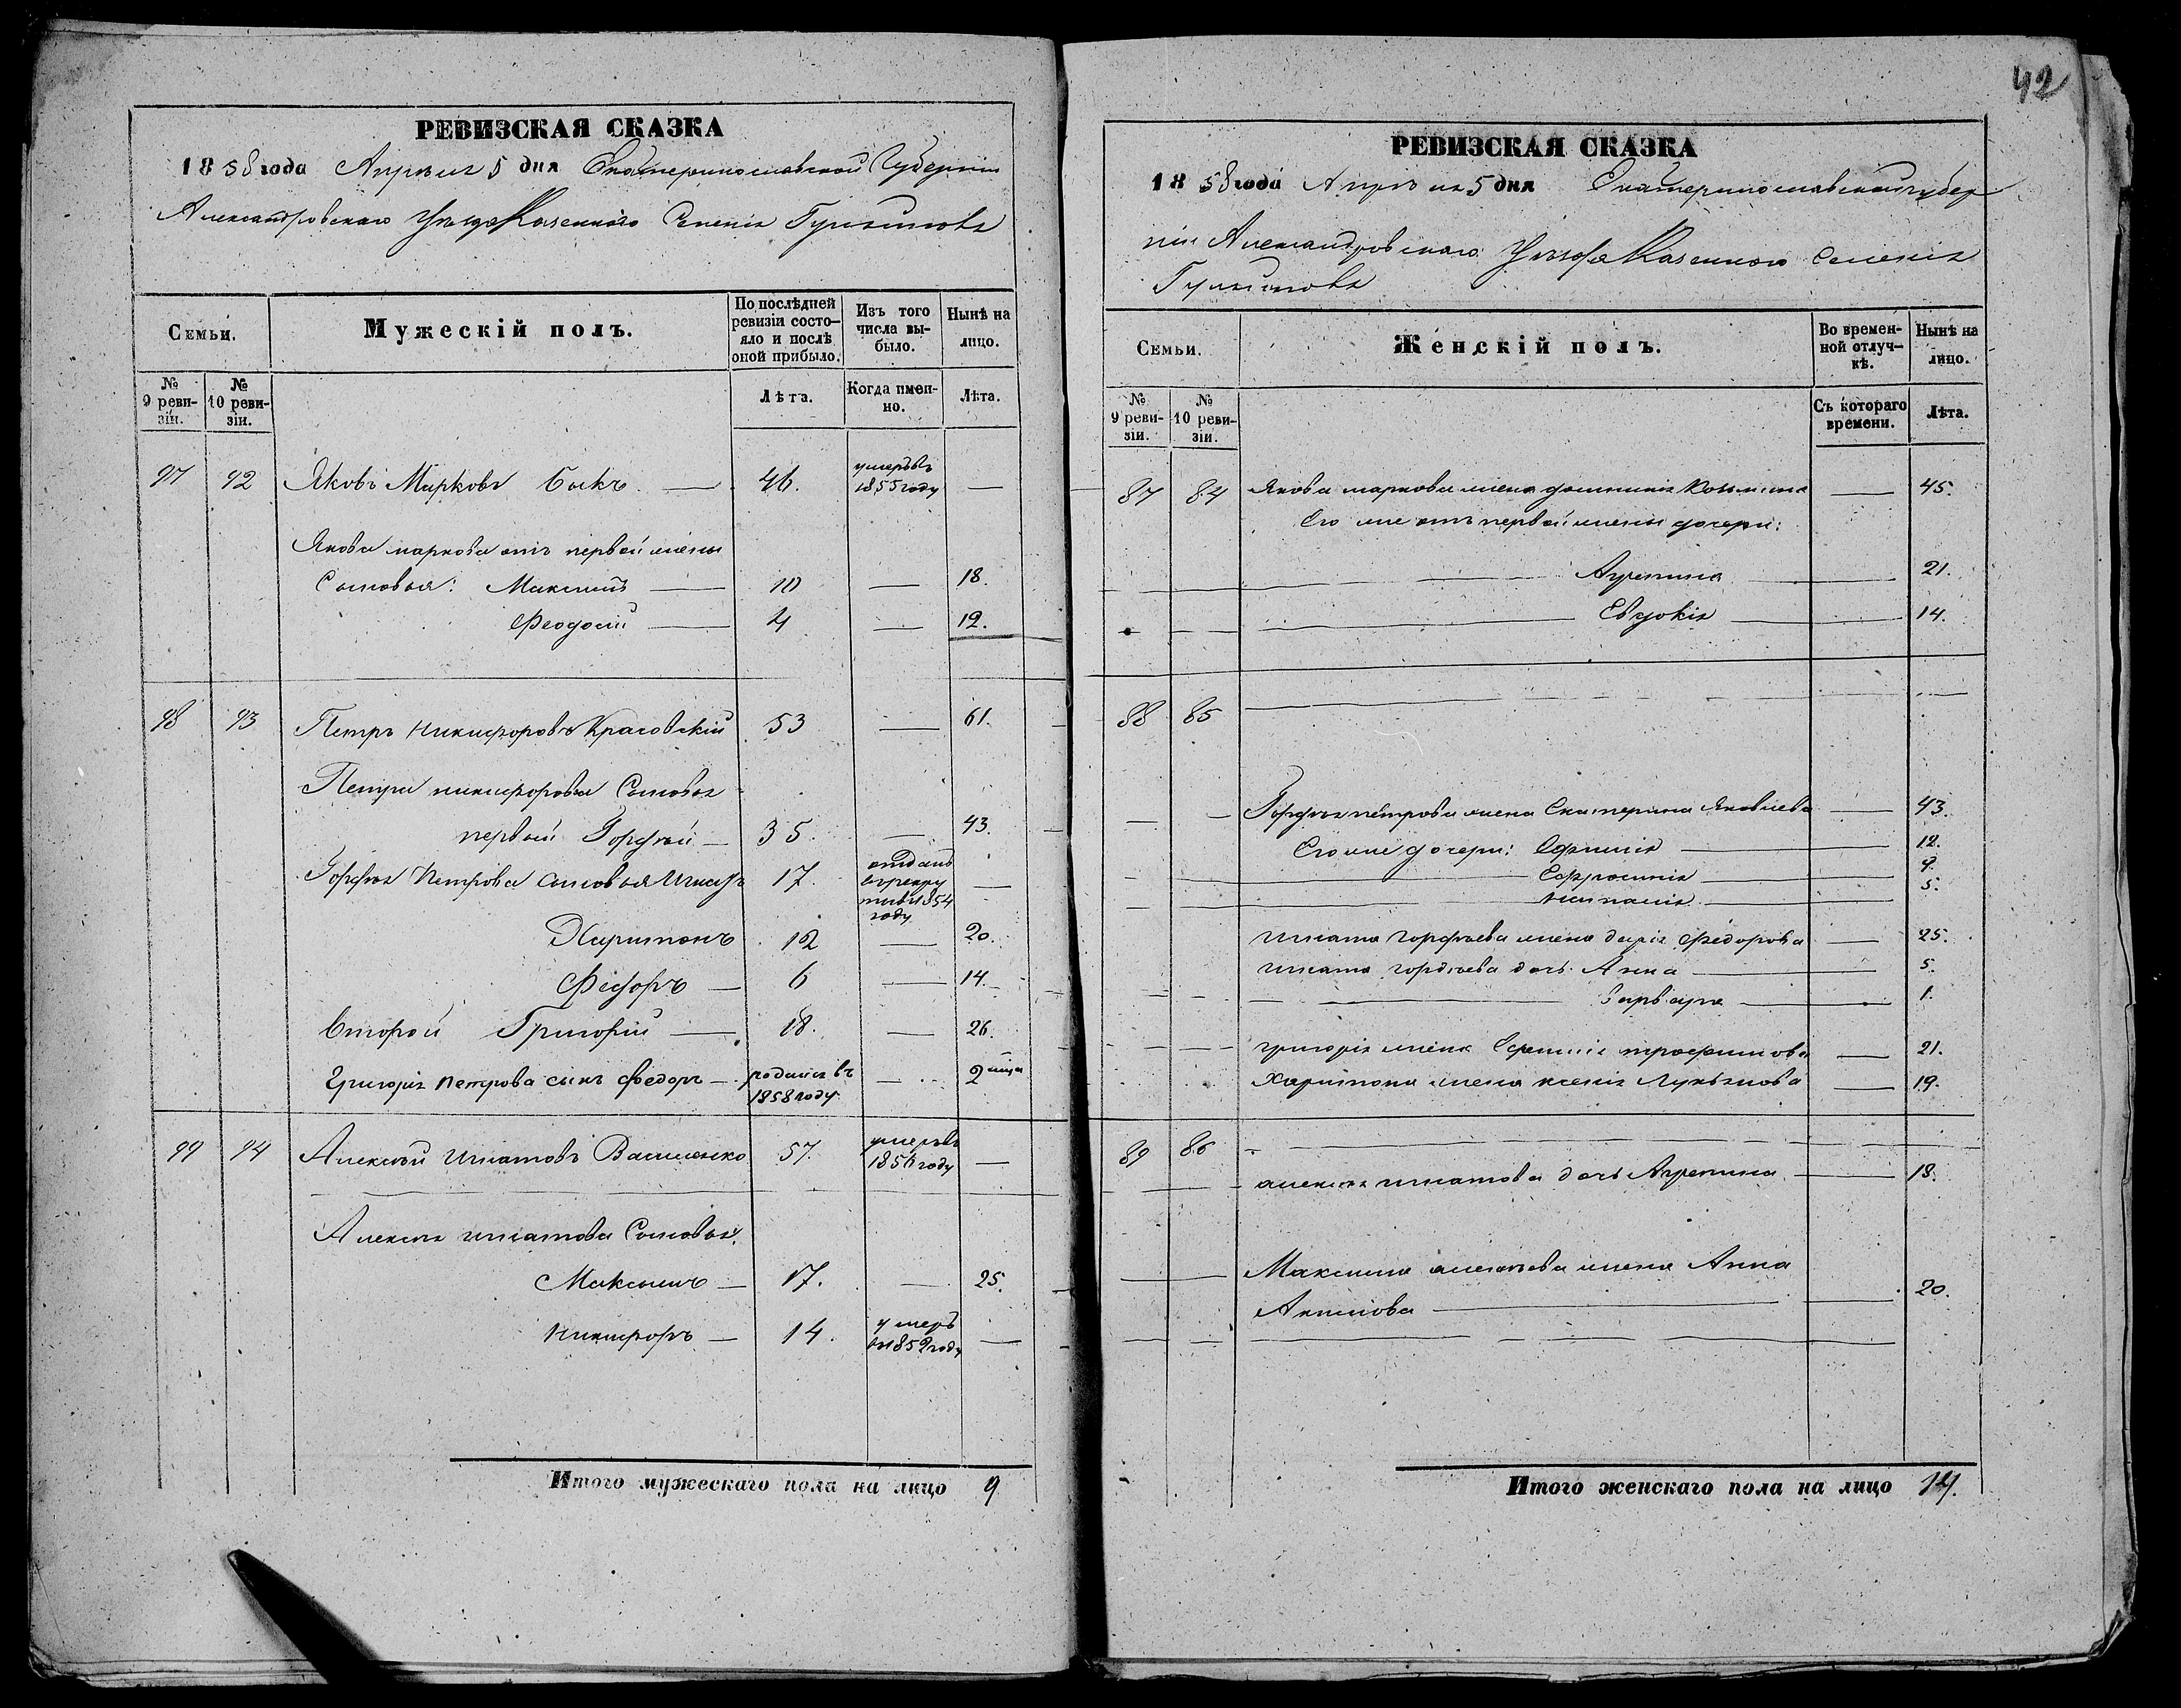 42
РЕВИЗСКАЯ СКАЗКА
1858 года Апреля 5 дня Екатеринославской Губернiи
Александровскаго Уезда Казеннаго Селенiя
Семьи.
Мужескiй полъ.
По послѣдней ревизiи состо-яло и послѣ оной прибыло.
Изъ того числа вы-было.
Нынѣ на лицо.
№ 9 реви-зiи.
№ 10 реви-зiи.
Лѣта.
Когда имен-но.
Лѣта.
97 92 Яковъ Марковъ Быкъ 46. умеръ въ 1855 году —
Якова маркова отъ первой жены
Сыновья: Максимъ 10 — 18.
Феодосiй 4 — 12.
98 93 Петръ никифоровъ Красовскiй 53 — 61.
Петра никифорова Сыновья
первый Гордѣй 35. — 43.
Гордѣя Петрова сыновья Игнатъ 17. отданъ в рекруты въ 1854 году —
Харитонъ 12 — 20.
Федоръ 6 — 14.
Второй Григорiй 18. — 26.
Григорiя Петрова сынъ Федоръ родился въ 1858 году — 2
99 94 Алексѣй Игнатовъ Василенко 57. умеръ въ 1856 году —
Алексѣя игнатова Сыновья
Максымъ 17. — 25.
никифоръ 14. умеръ въ 1852 году —
Итого мужескаго пола на лицо 9
РЕВИЗСКАЯ СКАЗКА
1858 года Апрѣля 5 дня Екатеринославской губер
нiи Александровскаго Уѣзда Казеннаго Селенiя
Семьи.
Женскiй полъ.
Во времен-ной отлуч-кѣ.
Нынѣ на лицо.
№ 9 реви-зiи.
№ 10 реви-зiи.
Съ котораго времени.
Лѣта.
87 84 Якова маркова жена домникiя Козьмина — 45.
Его же отъ первой жены дочери:
Агрепина 21.
Евдокiя 14.
88 85
Гордѣя петрова жена Екатерина Яковлева — 43.
Его же дочери: Ефимiя 12.
Ефросинiя 9.
5.
игната гордѣева жена дарiя федорова — 25.
игната гордѣева дочь Анна 5.
Варвара 1.
григорiя жена Ефимiя трофимова — 21.
Харитона жена ксенiя Лукьянова — 19.
89 86
алексѣя игнатова дочь Агрепина — 18.
Максима алексѣева жена Анна
Акимова — 20.
Итого женскаго пола на лицо 14.